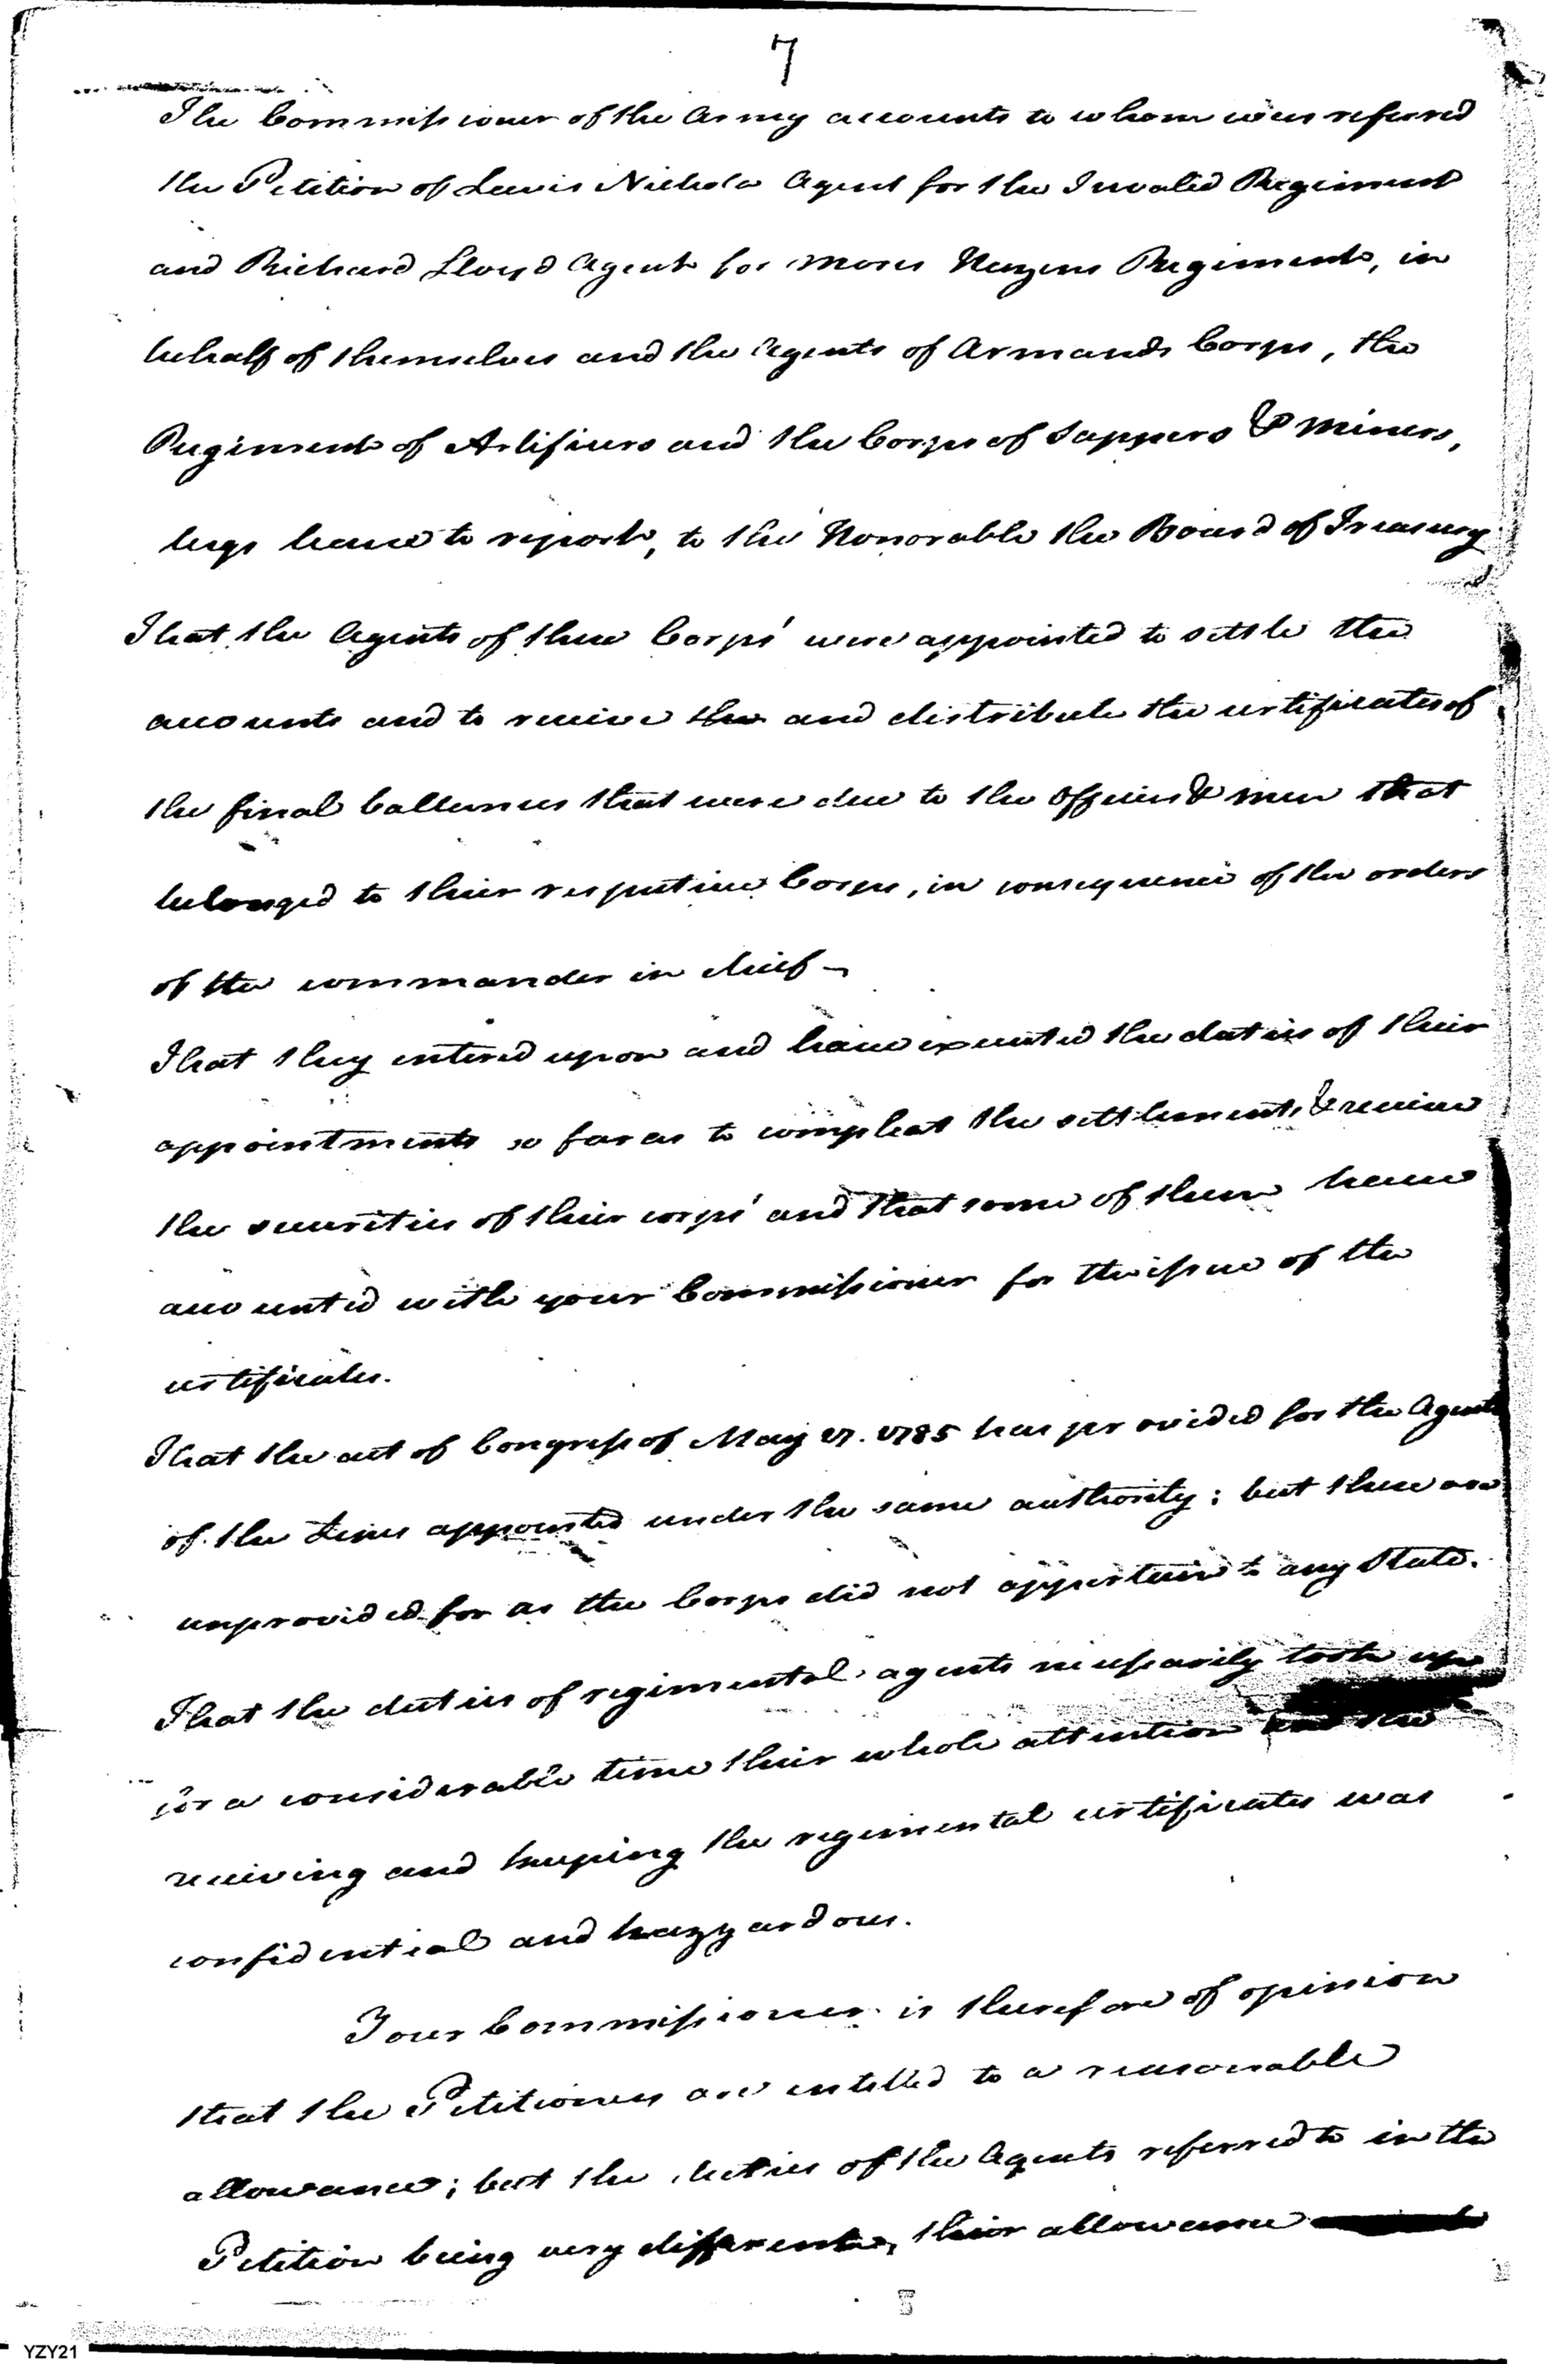 7
The Commissioner of the Army accounts to whom was referred
the Petition of Lewis Nichola Agent for the Invalid Regiment
and Richard Lloyd Agent for Moses Hazens Regiment, in
behalf of themselves and the Agents of Armands Corps, the
Regiment of Artificers and the Corps of Sappers & Miners,
begs leave to report, to the Honorable the Board of Treasury
That the Agents of these Corps' were appointed to settle the
accounts and to receive the and distribute the certificates of
the final ballances that were due to the Officers & men that
belonged to their respective Corps, in consequence of the orders
of the commander in chief –
That they entered upon and have executed the duties of their
appointments so far as to compleat the settlements & receive
the securities of their corps' and that some of them have
accounted with your Commissioner for the issue of the
certificates.
That the act of Congress of May 17. 1785 has provided for the Agents
of the Lines appointed under the same authority; but these are
unprovided for as the Corps did not appertain to any State.
That the duties of regimental agents necessarily took up
for a considerable time their whole attention and the
receiving and keeping the regimental certificates was
confidential and hazzardous.
Your Commissioner is therefore of opinion
that the Petitioners are entitled to a reasonable
allowance; but the duties of the Agents referred to in the
Petition being very different, their allowance
YZY21